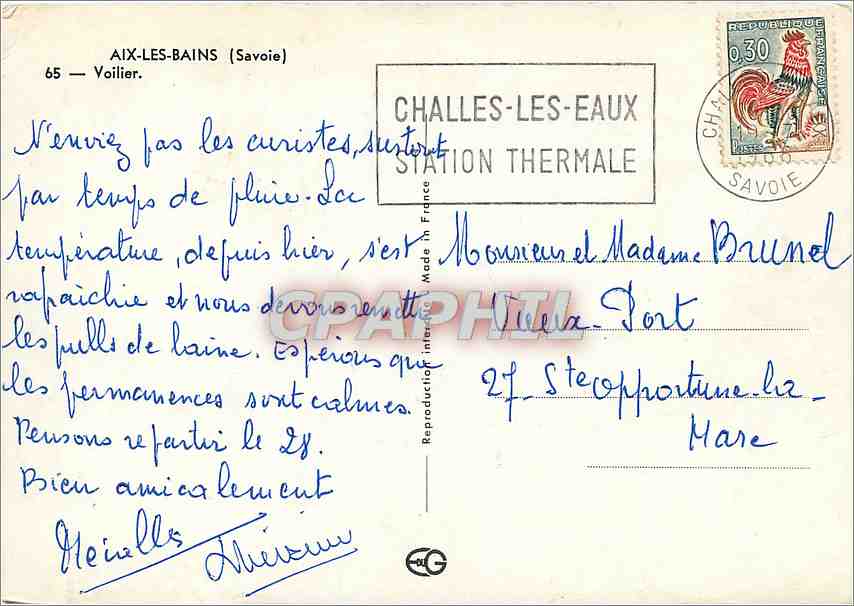 AIX-LES-BAINS (Savoie)
65 — Voilier.
N'enviez pas les curistes, surtout
par temps de pluie. La
température, depuis hier, s'est
rafraîchie et nous devons remettre
les pulls de laine. Espérons que
les permanences sont calmes.
Pensons repartir le 28.
Bien amicalement
CHALLES-LES-EAUX
STATION THERMALE
REPUBLIQUE FRANÇAISE
0,30
POSTES
SAVOIE
Reproduction interdite Made in France
CPAPHIL
Monsieur et Madame Brunel
Vieux-Port
27- Ste Opportune-la-
Mare
EDUG